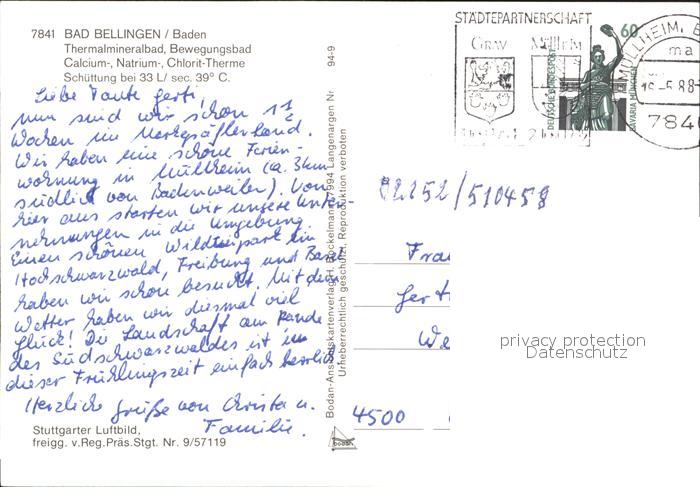 7841 BAD BELLINGEN / Baden
Thermalmineralbad, Bewegungsbad
Calcium-, Natrium-, Chlorit-Therme
Schüttung bei 33 L/ sec. 39° C.
Liebe Tante Gerti,
nun sind wir schon 1 1/2
Wochen im Markgräflerland.
Wir haben eine schöne Ferien-
wohnung in Müllheim (ca. 3 km
südlich von Badenweiler). Von
hier aus starten wir unsere Unter-
nehmungen in die Umgebung.
Einen schönen Wildtierpark im
Hochschwarzwald, Freiburg und Basel
haben wir schon besucht. Mit dem
Wetter haben wir diesmal viel
Glück! Die Landschaft am Rande
des Südschwarzwaldes ist in
dieser Frühlingszeit einfach herrlich
Herzliche Grüße von Christa u.
Familie.
Stuttgarter Luftbild,
freigg. v.Reg.Präs.Stgt. Nr. 9/57119
94-9
Bodan-Ansichtskartenverlag H. Bockelmann 7994 Langenargen Nr
Urheberrechtlich geschützt. Reproduktion verboten
bodan
STÄDTEPARTNERSCHAFT
Gray Müllheim
DEUTSCHE BUNDESPOST
60
BAVARIA MÜNCHEN
MÜLLHEIM, B
ma
-5.88
7840
02252/510458
Frau
Gert
We
4500
privacy protection
Datenschutz